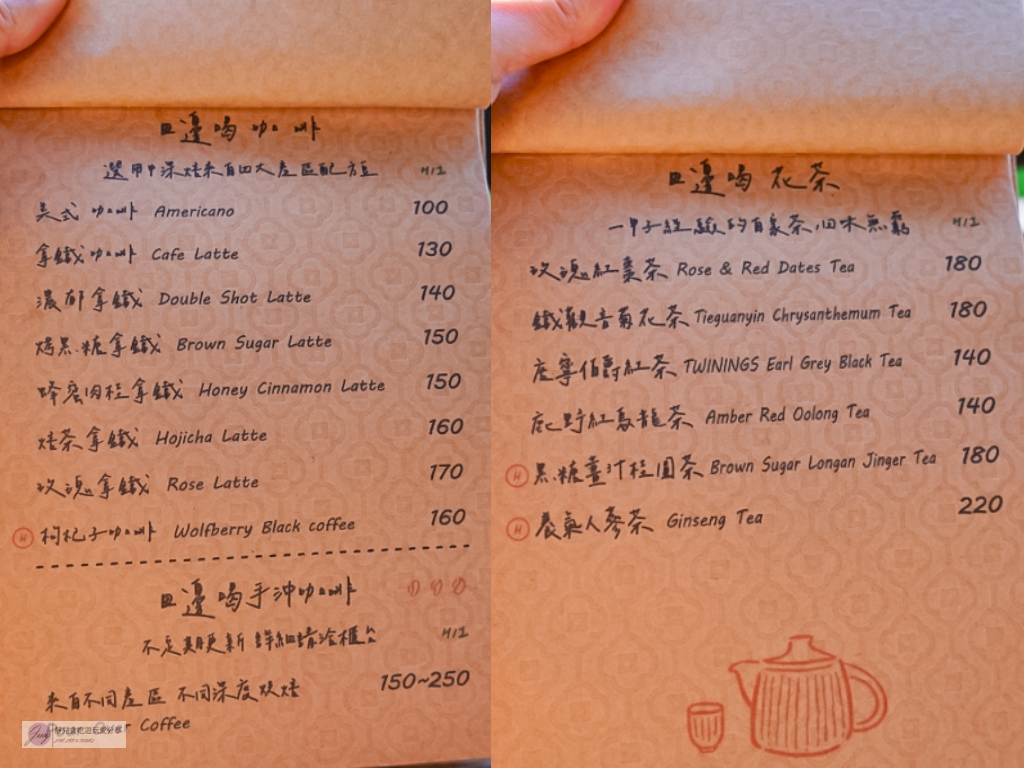 旦邊喝咖啡
選用中深焙來自四大產區配方豆 H/I
美式咖啡 Americano 100
拿鐵咖啡 Cafe Latte 130
濃郁拿鐵 Double Shot Latte 140
烤黑糖拿鐵 Brown Sugar Latte 150
蜂蜜肉桂拿鐵 Honey Cinnamon Latte 150
焙茶拿鐵 Hojicha Latte 160
玫瑰拿鐵 Rose Latte 170
H 枸杞子咖啡 Wolfberry Black coffee 160
旦邊喝手沖咖啡
不定期更新 詳細請洽櫃台 H/I
來自不同產區 不同深度烘焙 150~250
Over Coffee
旦邊喝花茶
一甲子經驗的自家茶,回味無窮 H/I
玫瑰紅棗茶 Rose & Red Dates Tea 180
鐵觀音菊花茶 Tieguanyin Chrysanthemum Tea 180
唐寧伯爵紅茶 TWININGS Earl Grey Black Tea 140
鹿野紅烏龍茶 Amber Red Oolong Tea 140
H 黑糖薑汁桂圓茶 Brown Sugar Longan Jinger Tea 180
H 養氣人蔘茶 Ginseng Tea 220